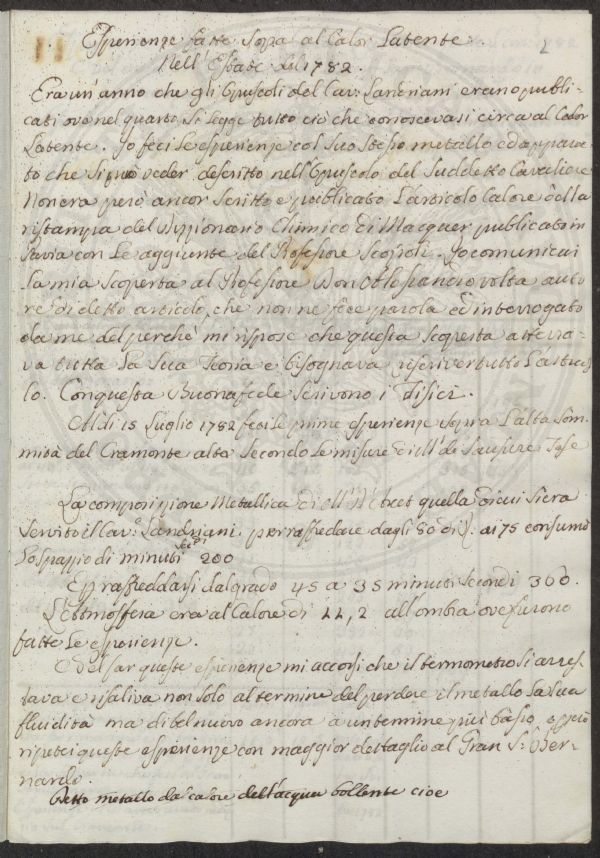 Esperienze fatte sopra al Calor Latente.
Nell'Estate del 1782.
Era un'anno che gli Opuscoli del Cav: Landriani erano publi-
cati ove nel quarto si legge tutto ciò che conoscevasi circa al Calor
Latente. Io feci le esperienze col suo stesso metallo ed appara-
to che si può veder descritto nell'Opuscolo del suddetto Cavaliere
Non era però ancor scritto e publicato l'articolo Calore della
ristampa del Dizzionario Chimico di Macquer publicato in
Pavia con le aggiunte del Professore Scopoli. Io comunicai
la mia scoperta al Professore Don Alessandro Volta auto
re di detto articolo, che non ne fece parola ed interrogato
da me del perchè mi rispose che questa scoperta atterra-
va tutta la sua Teoria e bisognava riscriver tutto l'artico
lo. Con questa Buonafede scrivono i Fisici.
Al di 15 Luglio 1782 feci le prime esperienze sopra l'alta som
mità del Cramonte alta secondo le misure di M.r de Sausure Tese
La composizione Metallica di M.r quella di cui si era
servito il Cav.e Landriani per raffredare dagli 80 di ai 75 consumò
lo spazzio di minuti sec.di 200
E raffreddarsi dal grado 45 a 35 minuti secondi 360.
L'atmosfera era al Calore di 11,2 all'ombra ove furono
fatte le esperienze.
E del far queste esperienze mi accorsi che il termometro si arres
tava e risaliva non solo al termine del perdere il metallo la sua
fluidità ma di bel nuovo ancora a un termine più basso, e perciò
ripetei queste esperienze con maggior dettaglio al Gran S: Ber-
nardo.
Detto metallo da calore dell'acqua bollente cioe